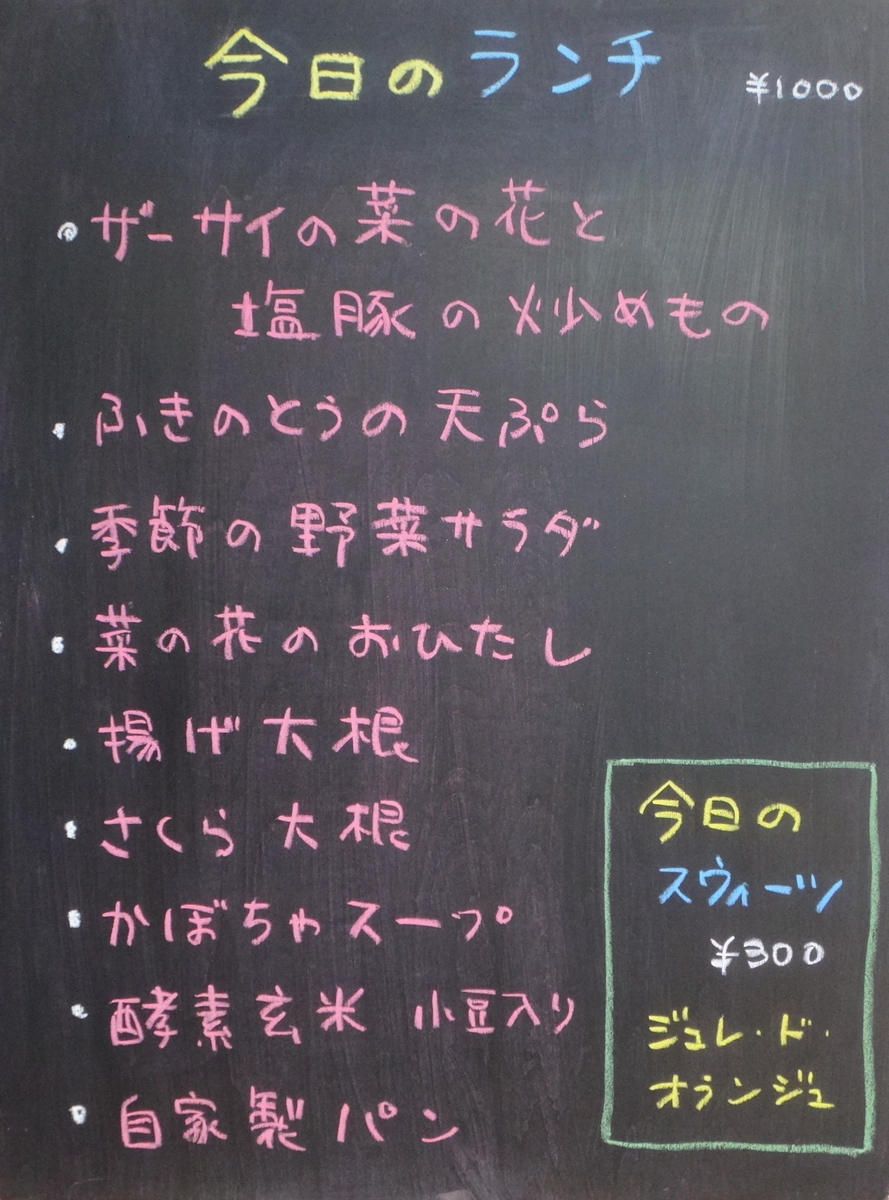 今日のランチ
¥1000
・ザーサイの菜の花と
塩豚の炒めもの
・ふきのとうの天ぷら
・季節の野菜サラダ
・菜の花のおひたし
・揚げ大根
・さくら大根
・かぼちゃスープ
・酵素玄米 小豆入り
・自家製パン
今日の
スウィーツ
¥300
ジュレ・ド・
オランジュ